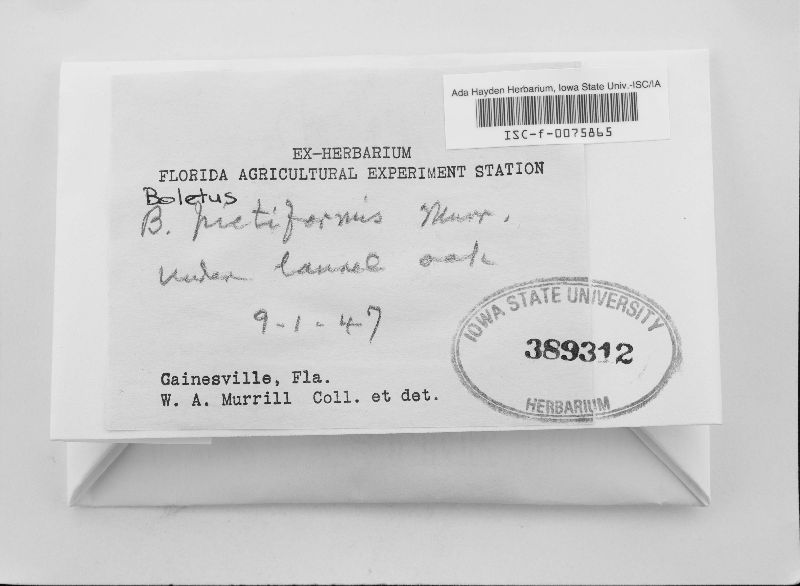 Ada Hayden Herbarium, Iowa State Univ.-ISC/IA
ISC-f-0075865
EX-HERBARIUM
FLORIDA AGRICULTURAL EXPERIMENT STATION
Boletus
B. pictiformis Murr.
Under laurel oak
9-1-47
Gainesville, Fla.
W. A. Murrill Coll. et det.
IOWA STATE UNIVERSITY
389312
HERBARIUM